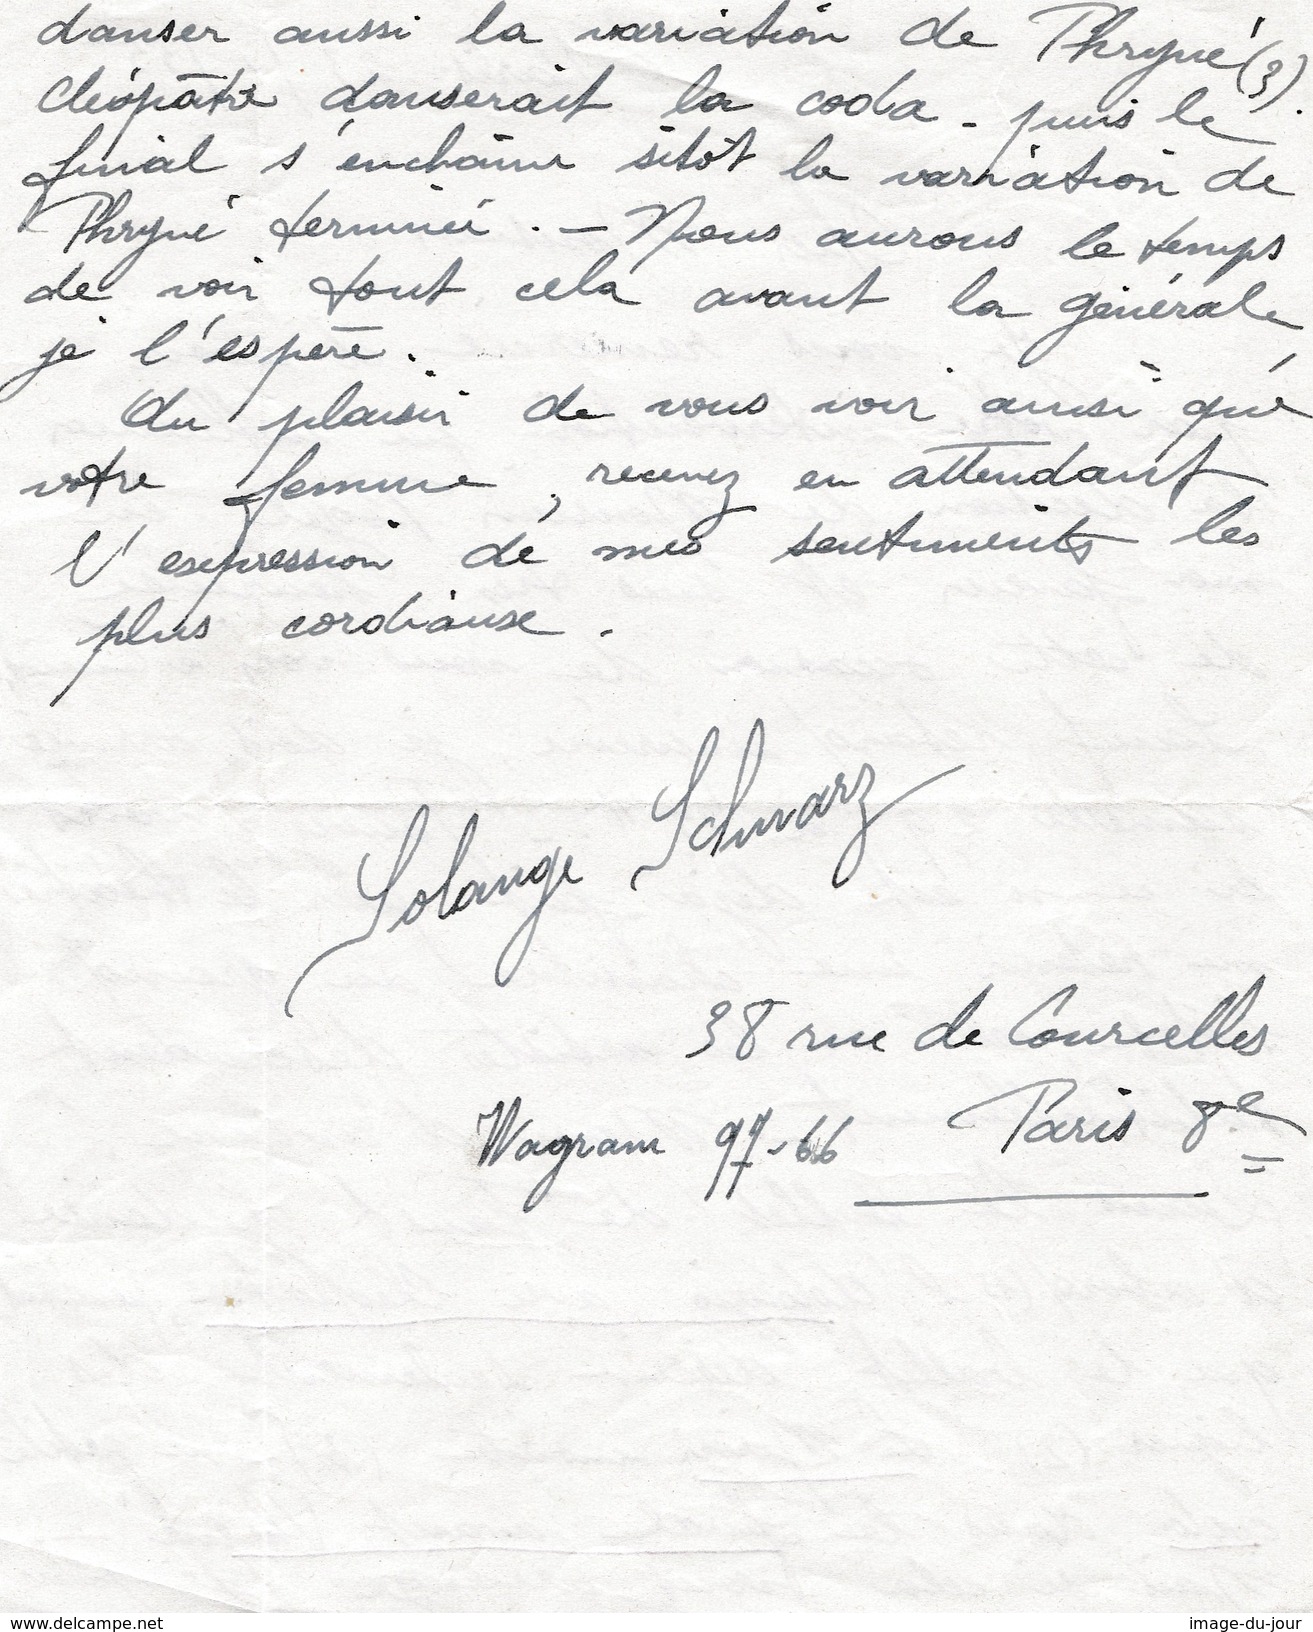 danser aussi la variation de Phryné (3).
Cléopâtre danserait la coda - puis le
final s'enchaîne sitôt la variation de
Phryné terminée. — Nous aurons le temps
de voir tout cela avant la générale
je l'espère.
Au plaisir de vous voir ainsi que
votre femme, recevez en attendant
l'expression de mes sentiments les
plus cordiaux.
Solange Schwarz
38 rue de Courcelles
Paris 8e
Wagram 97-66
www.delcampe.net
image-du-jour